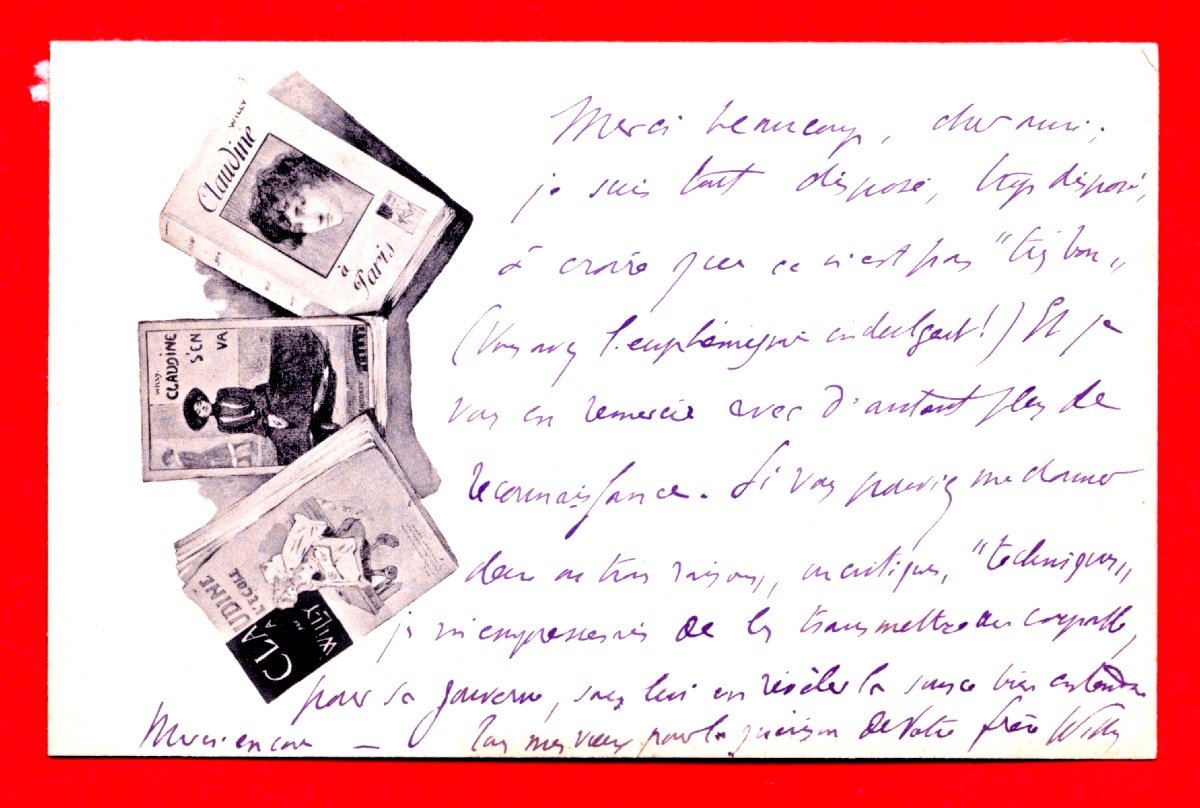 WILLY
Claudine
à
Paris
WILLY.
CLAUDINE
S'EN
VA
CLAUDINE
A
L'ECOLE
PAR
WILLY
Merci beaucoup, cher ami,
je suis tout disposé, trop disposé,
à croire que ce n'est pas "très bon"
(Vous avez l'euphémisme indulgent!) Et je
vous en remercie avec d'autant plus de
reconnaissance. Si vous pouviez me donner
deux ou trois raisons, ou critiques, "techniques"
je m'empresserais de les transmettre au coupable,
pour sa gouverne, sans lui en révéler la source bien entendu
Merci encore — Tous mes vœux pour la guérison de votre frère Willy